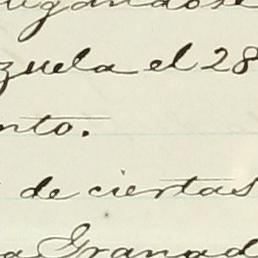 ugandose
zuela el 28
nto.
de ciertas
a Granad